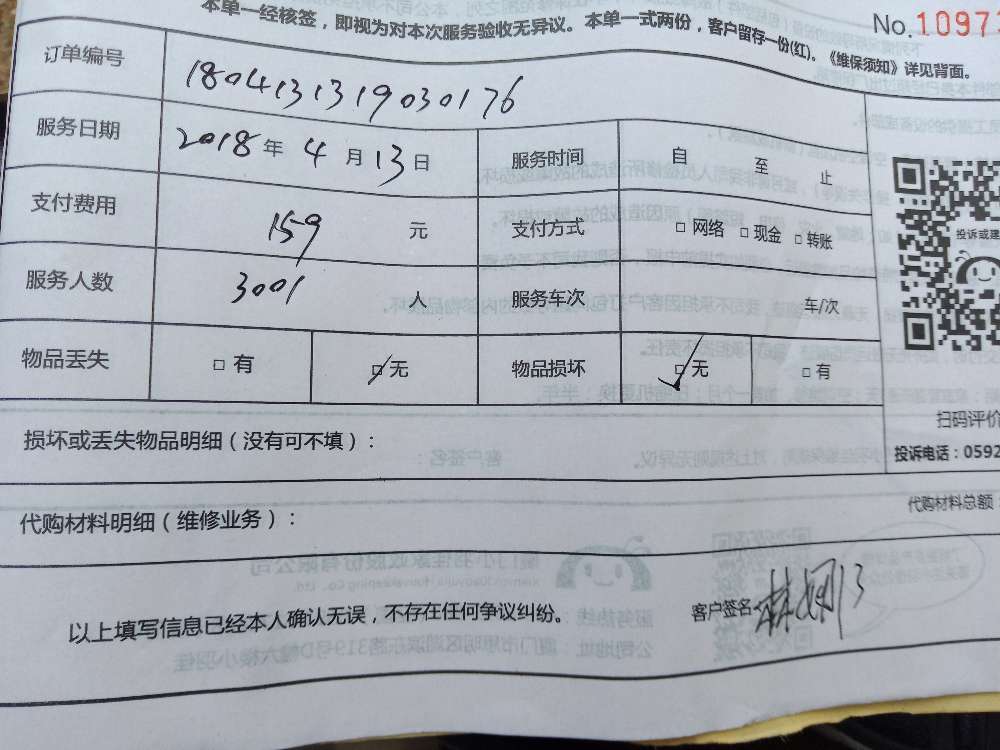 本单一经核签，即视为对本次服务验收无异议。本单一式两份，客户留存一份(红)。《维保须知》详见背面。
No.1097
订单编号 1804131319030176
服务日期 2018年4月13日 服务时间 自 至 止
支付费用 159 元 支付方式 □ 网络 □ 现金 □ 转账
投诉或建
服务人数 3001 人 服务车次 车/次
物品丢失 □ 有 □无 物品损坏 □无 □ 有
扫码评价
损坏或丢失物品明细（没有可不填）：
投诉电话：0592
代购材料总额：
代购材料明细（维修业务）：
以上填写信息已经本人确认无误，不存在任何争议纠纷。 客户签名